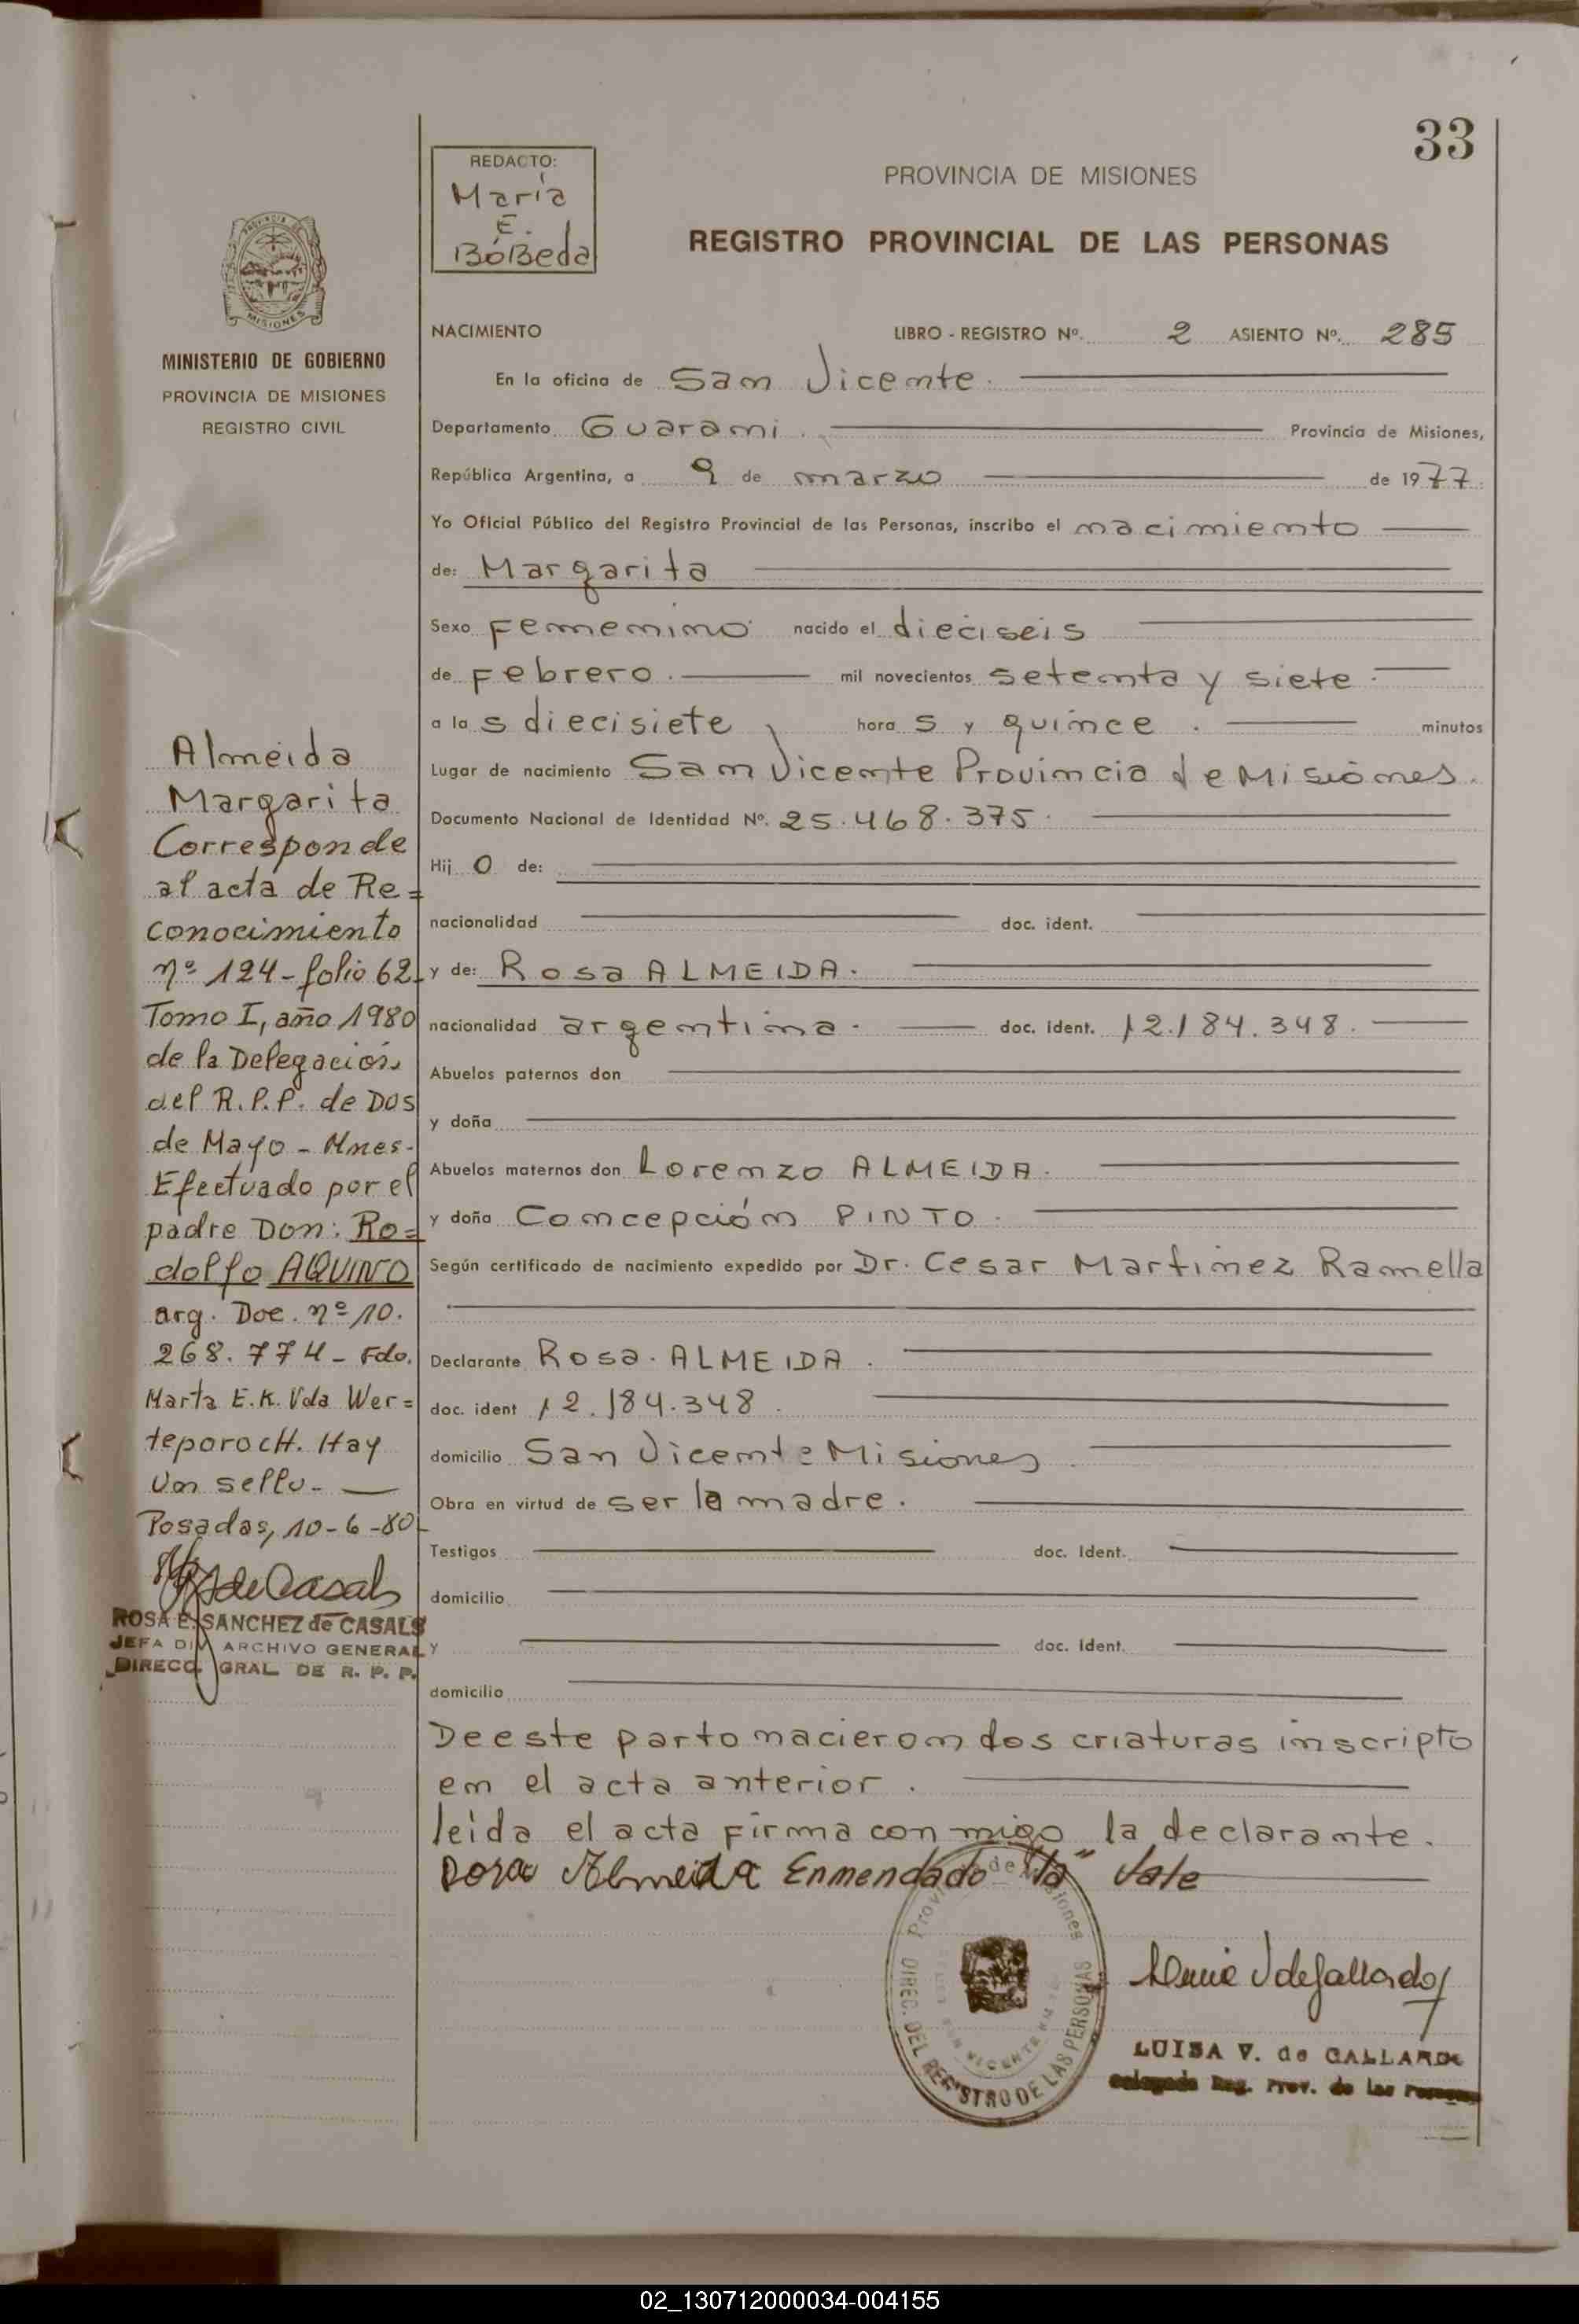 33
REDACTO:
María
E.
BóBeda
PROVINCIA DE MISIONES
REGISTRO PROVINCIAL DE LAS PERSONAS
MISIONES
MINISTERIO DE GOBIERNO
PROVINCIA DE MISIONES
REGISTRO CIVIL
NACIMIENTO LIBRO - REGISTRO Nº. 2 ASIENTO Nº. 285
En la oficina de San Vicente.
Departamento Guarani. Provincia de Misiones,
República Argentina, a 9 de marzo de 1977.
Yo Oficial Público del Registro Provincial de las Personas, inscribo el nacimiento
de: Margarita
Sexo Femenino nacido el dieciseis
de Febrero. mil novecientos setenta y siete.
a las diecisiete hora s y quince. minutos
Lugar de nacimiento San Vicente Provincia de Misiones.
Documento Nacional de Identidad Nº. 25.468.375.
Hij o de:
nacionalidad doc. ident.
y de: Rosa ALMEIDA.
nacionalidad argentina. doc. ident. 12.184.348.
Abuelos paternos don
y doña
Abuelos maternos don Lorenzo ALMEIDA.
y doña Concepción PINTO.
Según certificado de nacimiento expedido por Dr. Cesar Martinez Ramella
Declarante Rosa. ALMEIDA.
doc. ident 12.184.348.
domicilio San Vicente Misiones.
Obra en virtud de ser la madre.
Testigos doc. Ident.
domicilio
y doc. Ident.
domicilio
De este parto nacieron dos criaturas inscripto
en el acta anterior.
leida el acta firma conmigo la declarante.
Rosa Almeida Enmendado "la" Vale
Almeida
Margarita
Corresponde
al acta de Re=
conocimiento
nº 124 - folio 62-
Tomo I, año 1980
de la Delegación
del R.P.P. de Dos
de Mayo - Mnes-
Efectuado por el
padre Don: Ro=
dolfo AQUINO
arg. Doc. nº 10.
268.774 - Fdo.
Marta E.K. Vda Wer=
teporocH. Hay
Un sello-
Posadas, 10-6-80-
ROSA E. SANCHEZ de CASALS
JEFA DIV ARCHIVO GENERAL
DIRECC. GRAL DE R. P. P.
Provincia de Misiones
DIREC. DEL REGISTRO DE LAS PERSONAS
LUISA V. de GALLARDO
Delegada Reg. Prov. de las Personas
02_130712000034-004155